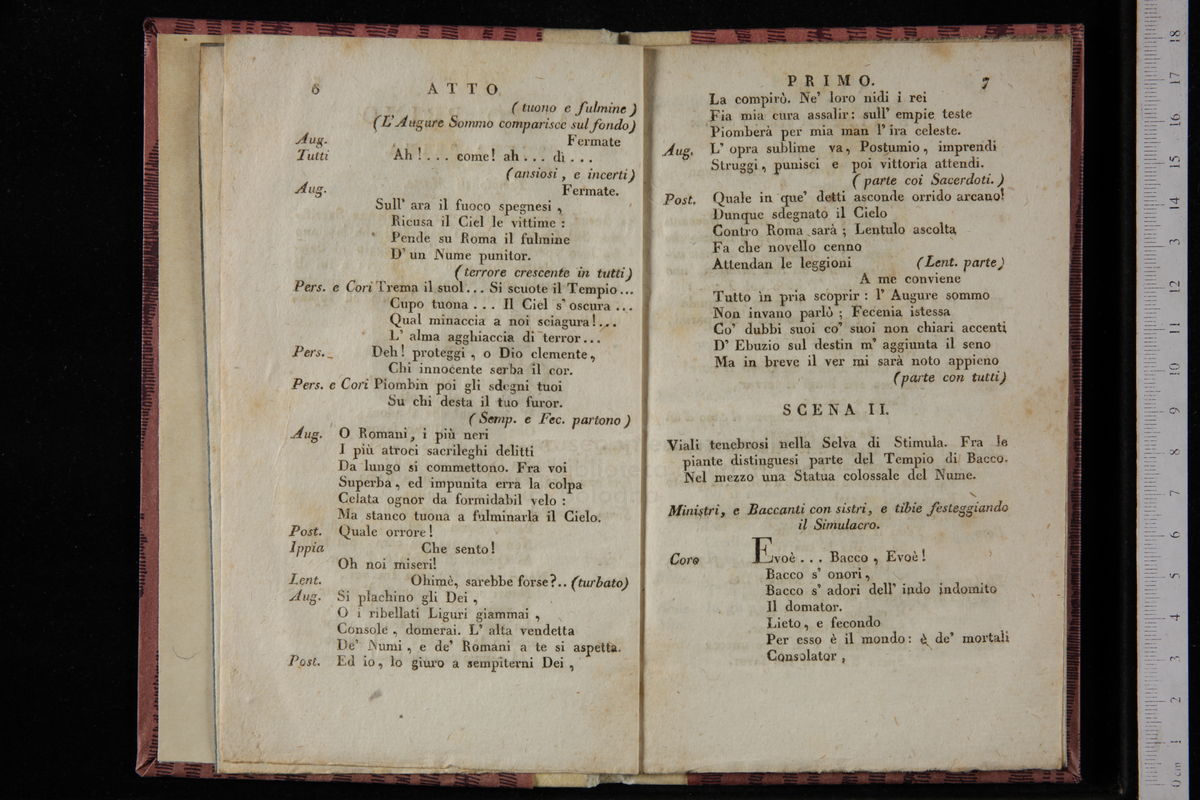 6 ATTO
( tuono e fulmine )
( L' Augure Sommo comparisce sul fondo)
Aug. Fermate
Tutti Ah ! . . . come! ah . . . dì . . .
( ansiosi , e incerti )
Aug. Fermate.
Sull' ara il fuoco spegnesi ,
Ricusa il Ciel le vittime :
Pende su Roma il fulmine
D' un Nume punitor.
( terrore crescente in tutti )
Pers. e Cori Trema il suol... Si scuote il Tempio ...
Cupo tuona . . . Il Ciel s' oscura ...
Qual minaccia a noi sciagura!...
L' alma agghiaccia di terror...
Pers. Deh! proteggi , o Dio clemente,
Chi innocente serba il cor.
Pers. e Cori Piombin poi gli sdegni tuoi
Su chi desta il tuo furor.
( Semp. e Fec. partono )
Aug. O Romani, i più neri
I più atroci sacrileghi delitti
Da lungo si commettono. Fra voi
Superba , ed impunita erra la colpa
Celata ognor da formidabil velo :
Ma stanco tuona a fulminarla il Cielo.
Post. Quale orrore !
Ippia Che sento !
Oh noi miseri!
Lent. Ohimè, sarebbe forse?.. (turbato)
Aug. Si plachino gli Dei ,
O i ribellati Liguri giammai ,
Console , domerai. L' alta vendetta
De' Numi , e de' Romani a te si aspetta.
Post. Ed io, lo giuro a sempiterni Dei ,
PRIMO. 7
La compirò. Ne' loro nidi i rei
Fia mia cura assalir: sull' empie teste
Piomberà per mia man l' ira celeste.
Aug. L' opra sublime va, Postumio , imprendi
Struggi, punisci e poi vittoria attendi.
( parte coi Sacerdoti. )
Post. Quale in que' detti asconde orrido arcano!
Dunque sdegnato il Cielo
Contro Roma sarà ; Lentulo ascolta
Fa che novello cenno
Attendan le legioni (Lent. parte)
A me conviene
Tutto in pria scoprir : l' Augure sommo
Non invano parlò ; Fecenia istessa
Co' dubbi suoi co' suoi non chiari accenti
D' Ebuzio sul destin m' aggiunta il seno
Ma in breve il ver mi sarà noto appieno
(parte con tutti)
SCENA II.
Viali tenebrosi nella Selva di Stimula. Fra le
piante distinguesi parte del Tempio di Bacco.
Nel mezzo una Statua colossale del Nume.
Ministri, e Baccanti con sistri, e tibie festeggiando
il Simulacro.
Coro Evoè . . . Bacco , Evoè !
Bacco s' onori ,
Bacco s' adori dell' indo indomito
Il domator.
Lieto, e fecondo
Per esso è il mondo: è de' mortali
Consolator ,
0 cm 1 2 3 4 5 6 7 8 9 10 11 12 13 14 15 16 17 18